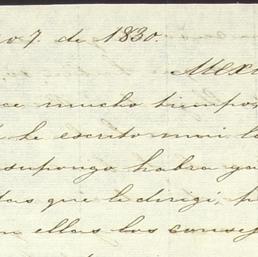 o 7. de 1830.
Mexi
ce mucho tiempo,
he escrito mui la
supongo habra ya
tas que le dirigi, p
n ellas los consej